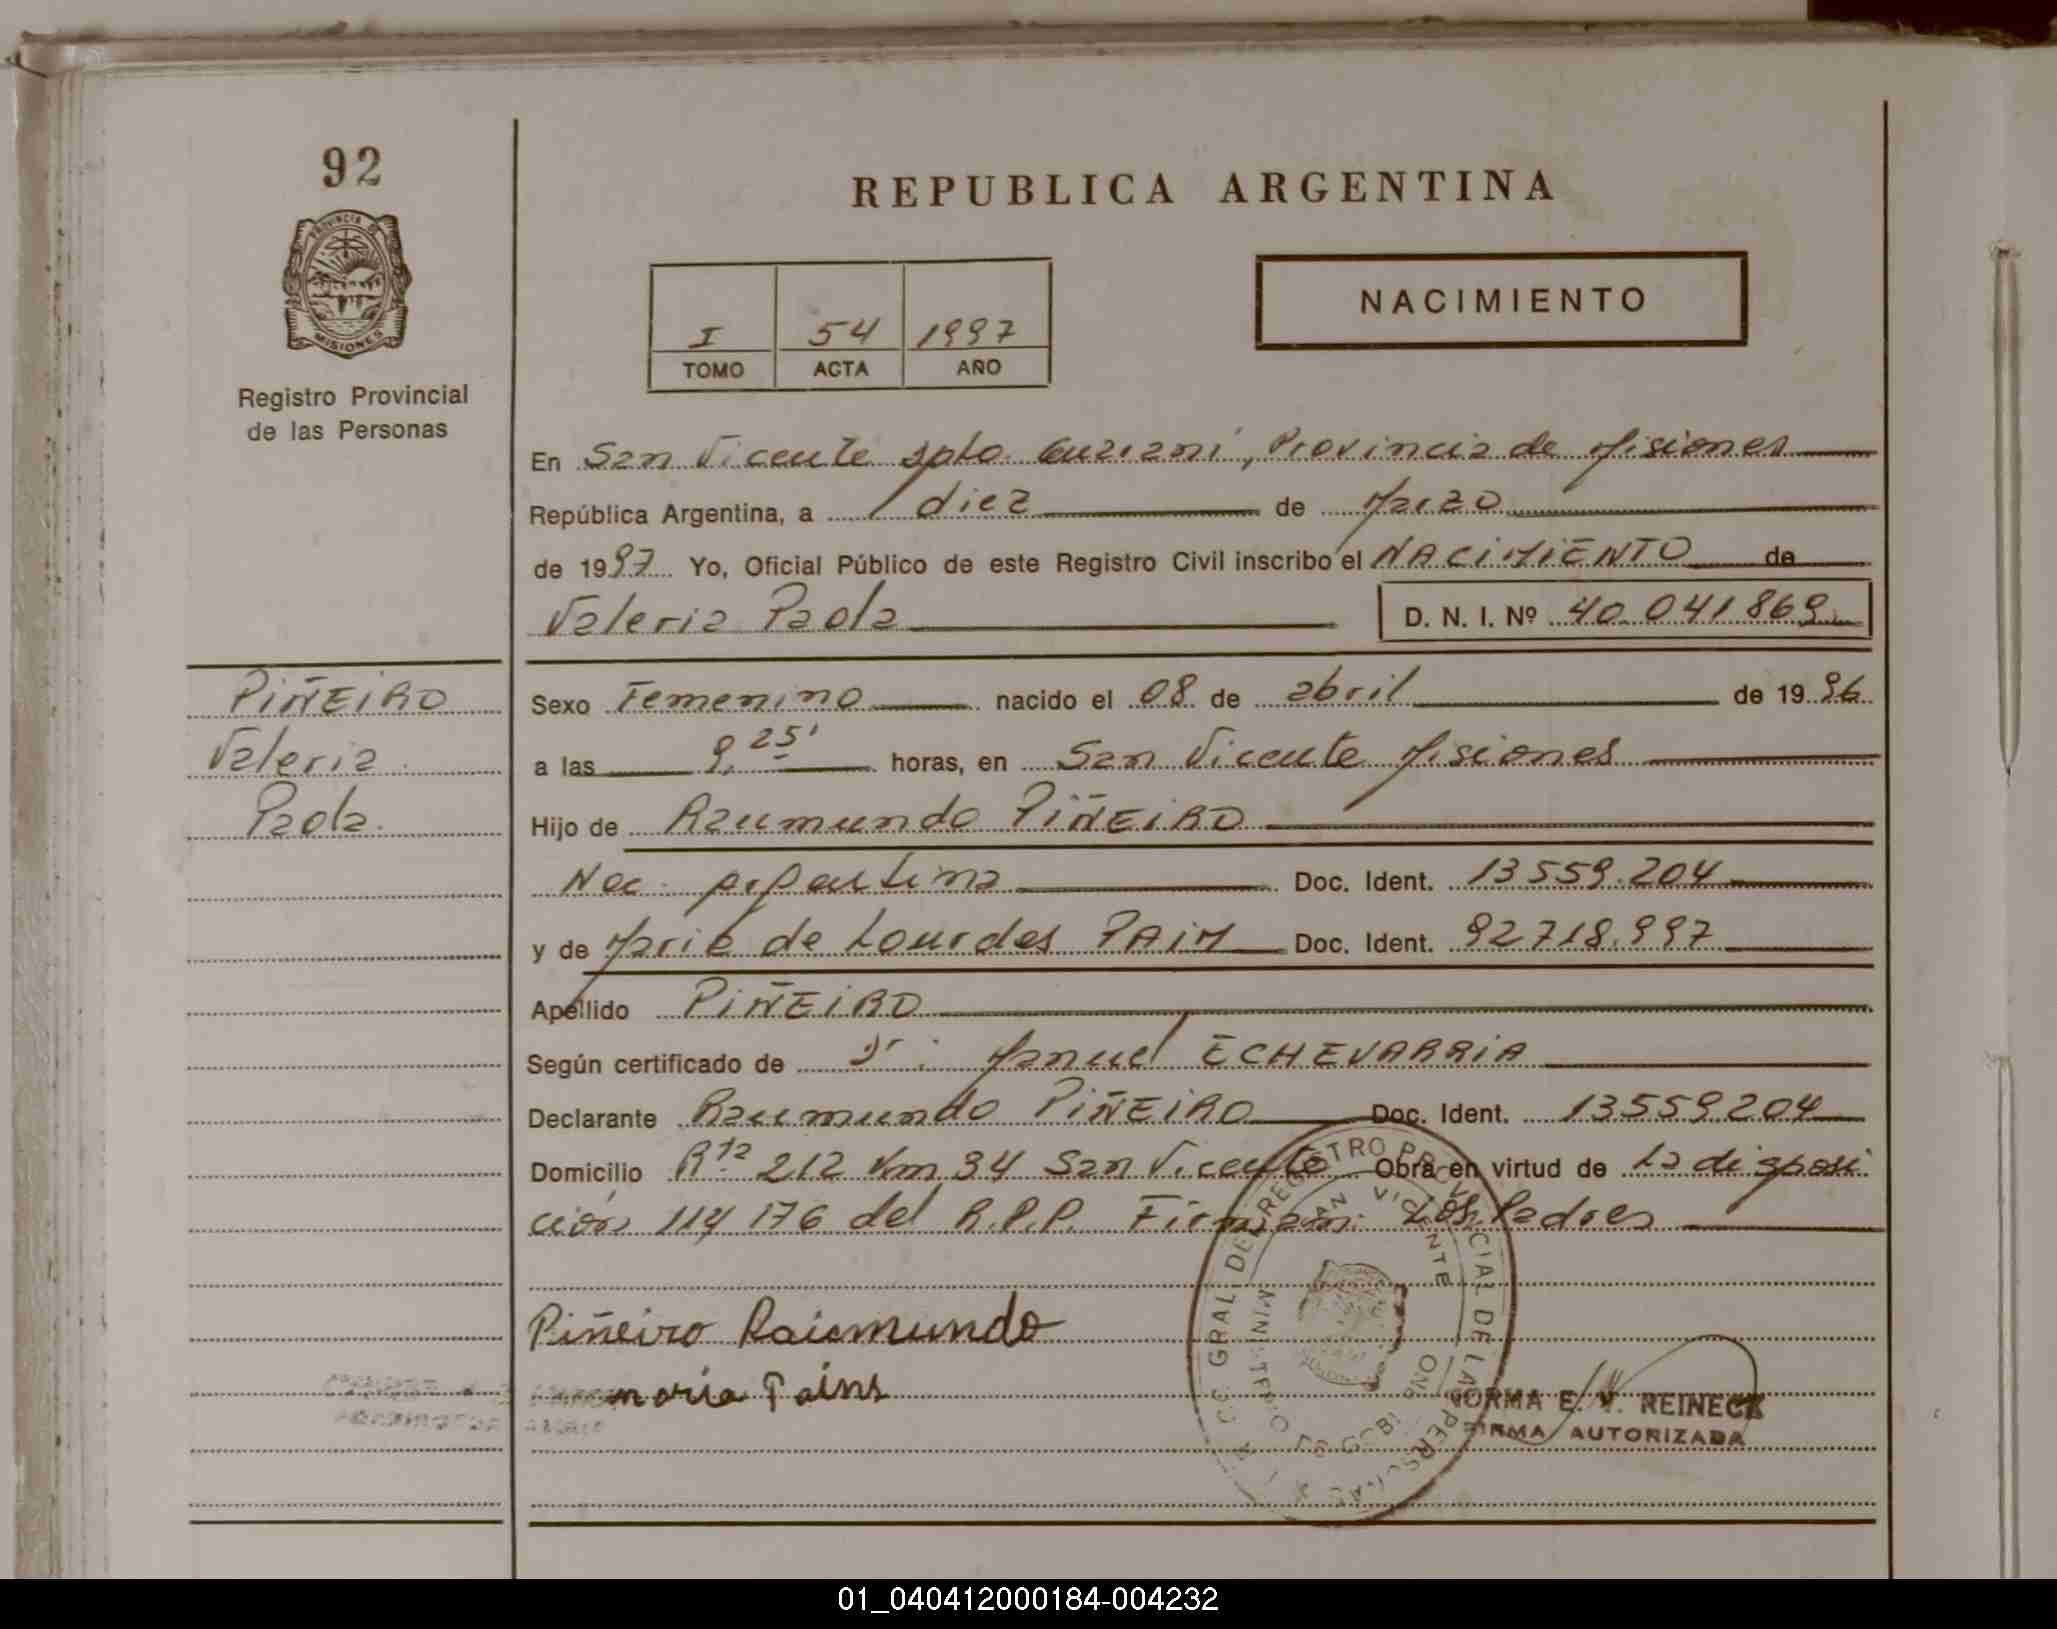 92
REPUBLICA ARGENTINA
PROVINCIA DE
MISIONES
Registro Provincial
de las Personas
I 54 1997
TOMO ACTA AÑO
NACIMIENTO
En San Vicente dpto. Guarani, Provincia de Misiones
República Argentina, a diez de Marzo
de 1997 Yo, Oficial Público de este Registro Civil inscribo el NACIMIENTO de
Valeria Paola D. N. I. Nº 40.041.869
PIÑEIRO
Valeria
Paola
Sexo Femenino nacido el 08 de abril de 1996
a las 9,25' horas, en San Vicente Misiones
Hijo de Raumundo PIÑEIRO
Nac. argentina Doc. Ident. 13559.204
y de Maria de Lourdes PAIM Doc. Ident. 92718.997
Apellido PIÑEIRO
Según certificado de Manuel ECHEVARRIA
Declarante Raumundo PIÑEIRO Doc. Ident. 13559204
Domicilio Rta 212 Km 34 San Vicente Obra en virtud de La disposi
ción 114 176 del R.P.P. Firman: Los Padres
Piñeiro Raiemundo
maria Pains
GRAL. DEL REGISTRO PROVINCIAL DE LAS PERSONAS
SAN VICENTE
NORMA E. V. REINECK
FIRMA AUTORIZADA
01_040412000184-004232